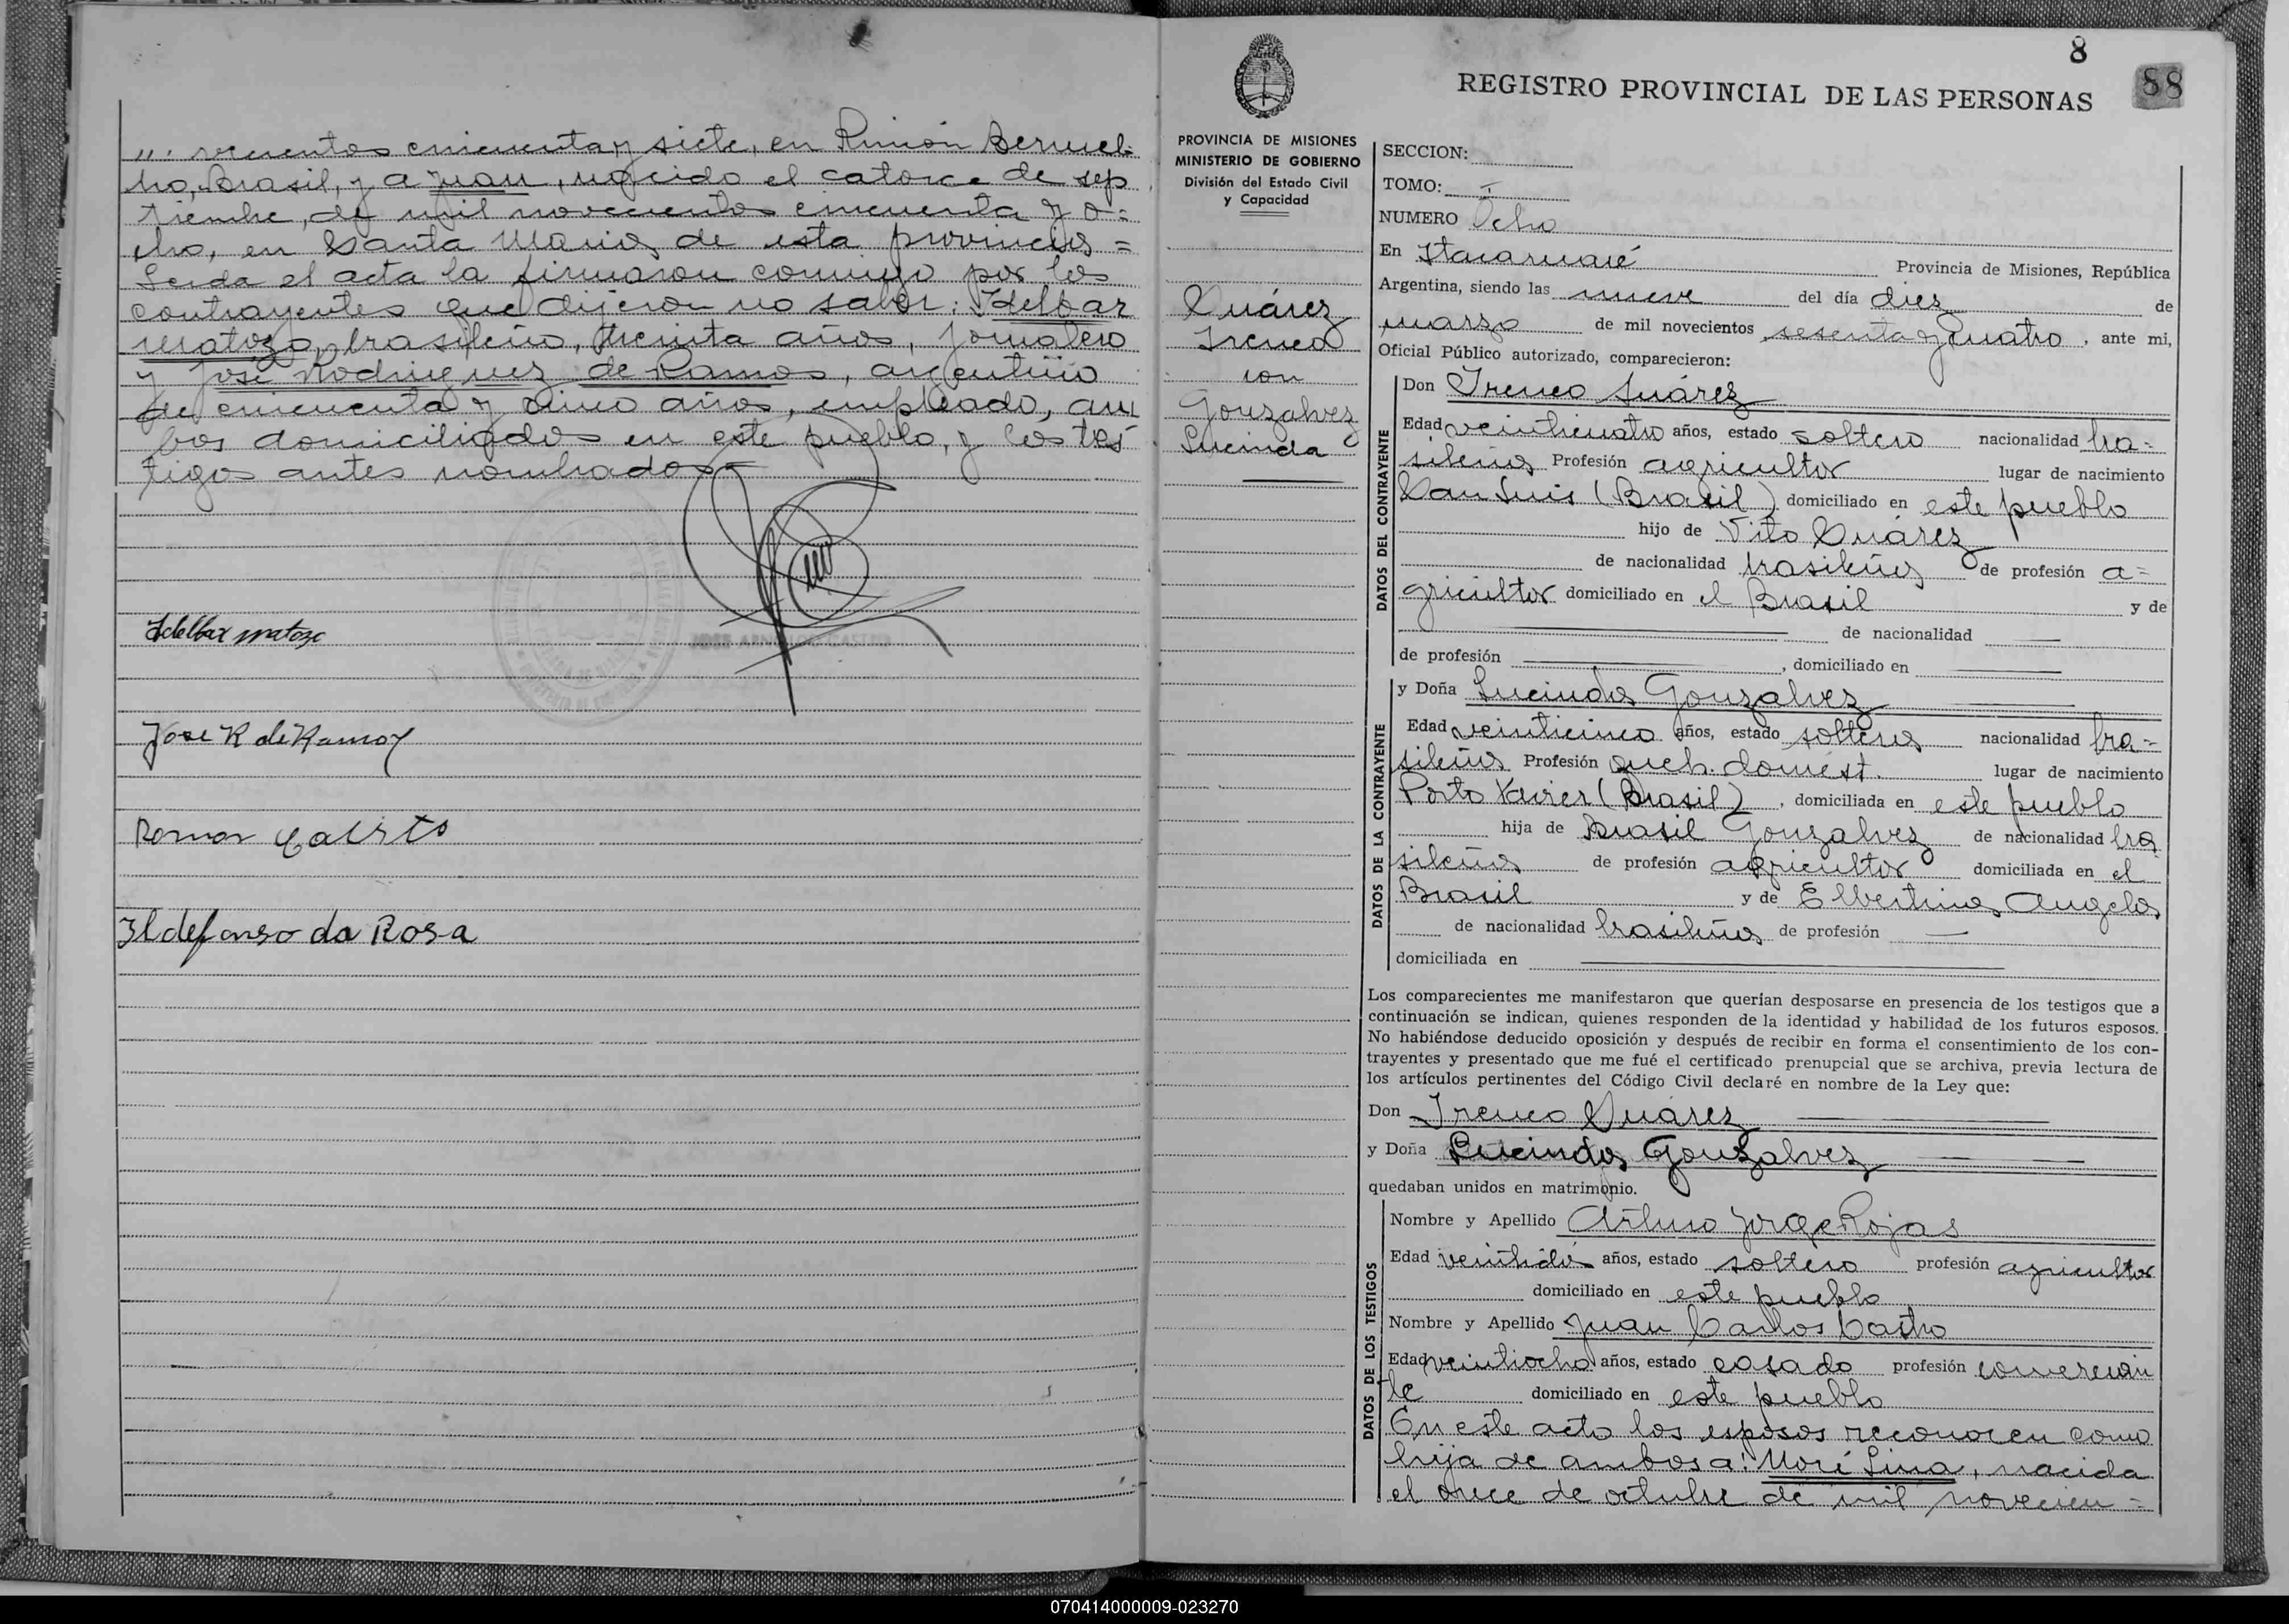 "' vecientos cincuenta y siete, en Rincón Bermel-
ho, Brasil, y a Juan, nacido el catorce de sep
tiembre, de mil novecientos cincuenta y o=
cho, en Santa María, de esta provincia=
Leida el acta la firmaron conmigo por los
contrayentes que dijeron no saber: Idelbar
Matozo, brasileño, treinta años, jornalero
y José Rodriguez de Ramos, argentino
de cincuenta y cinco años, empleado, am
bos domiciliados en este pueblo, y los tes
tigos antes nombrados=
Idelbar matozo
JOSE ARNOLDO CASTRO
Jose R de Ramos
Ramon
Ildefonso da Rosa
8
88
REGISTRO PROVINCIAL DE LAS PERSONAS
PROVINCIA DE MISIONES
MINISTERIO DE GOBIERNO
División del Estado Civil
y Capacidad
Suárez
Ireneo
con
Gonzalvez
Lucinda
SECCION:
TOMO: I
NUMERO Ocho
En Itacaruaré Provincia de Misiones, República
Argentina, siendo las nueve del día diez de
marzo de mil novecientos sesenta y cuatro, ante mi,
Oficial Público autorizado, comparecieron:
DATOS DEL CONTRAYENTE
Don Ireneo Suárez
Edad veinticuatro años, estado soltero nacionalidad bra-
sileña Profesión agricultor lugar de nacimiento
San Luis (Brasil) domiciliado en este pueblo
hijo de Vito Suárez
de nacionalidad brasileña de profesión a=
gricultor domiciliado en el Brasil y de
de nacionalidad
de profesión , domiciliado en
DATOS DE LA CONTRAYENTE
y Doña Lucinda Gonzalvez
Edad veinticinco años, estado soltera nacionalidad bra=
sileña Profesión queh. domést. lugar de nacimiento
Porto Xavier (Brasil), domiciliada en este pueblo
hija de Brasil Gonzalvez de nacionalidad bra
sileña de profesión agricultor domiciliada en el
Brasil y de Elbertina Angela
de nacionalidad brasileña de profesión —
domiciliada en
Los comparecientes me manifestaron que querían desposarse en presencia de los testigos que a
continuación se indican, quienes responden de la identidad y habilidad de los futuros esposos.
No habiéndose deducido oposición y después de recibir en forma el consentimiento de los con-
trayentes y presentado que me fué el certificado prenupcial que se archiva, previa lectura de
los artículos pertinentes del Código Civil declaré en nombre de la Ley que:
Don Ireneo Suárez
y Doña Lucinda Gonzalvez
quedaban unidos en matrimonio.
DATOS DE LOS TESTIGOS
Nombre y Apellido Arturo Jorge Rojas
Edad veintidós años, estado soltero profesión agricultor
domiciliado en este pueblo
Nombre y Apellido Juan Carlos Castro
Edad veintiocho años, estado casado profesión comercian
te domiciliado en este pueblo
En este acto los esposos reconocen como
hija de ambos a: Lina, nacida
el once de octubre de mil novecien=
070414000009-023270